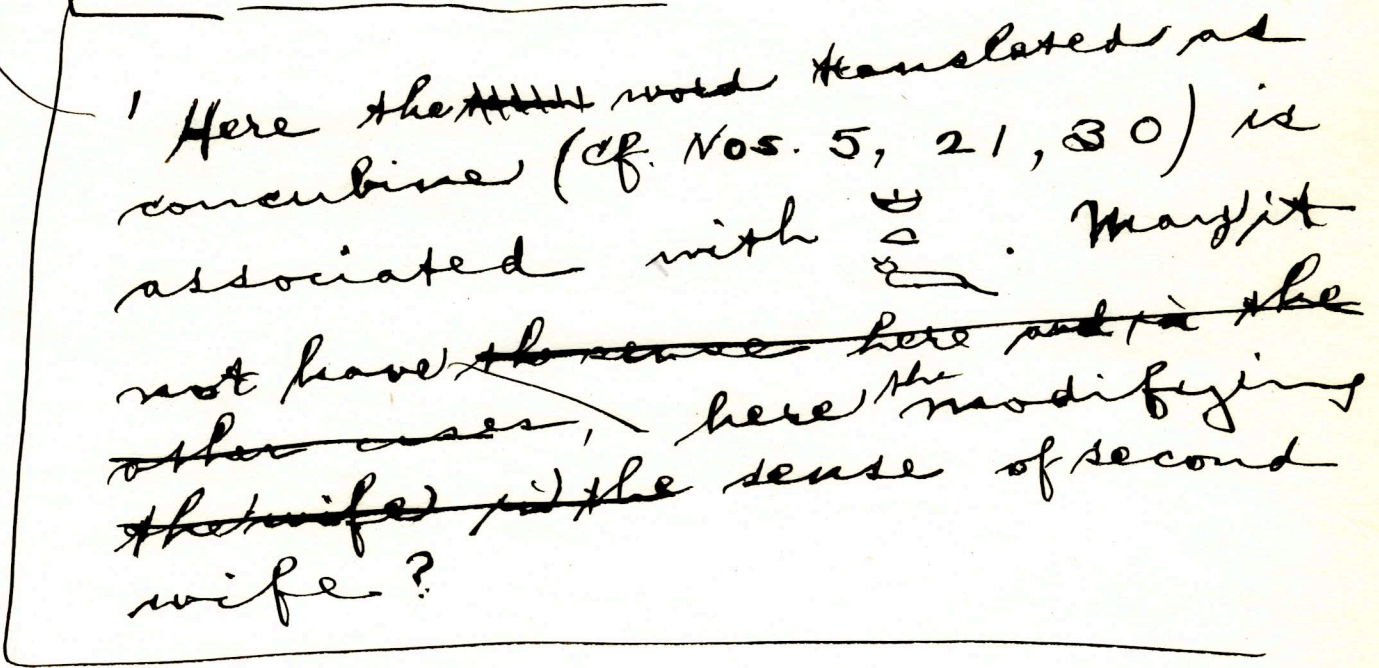 1 Here the word translated as
concubine (cf. Nos. 5, 21, 30) is
associated with . May it
not have the sense here and in the
other cases, here the modifying
the wife in the sense of second
wife?